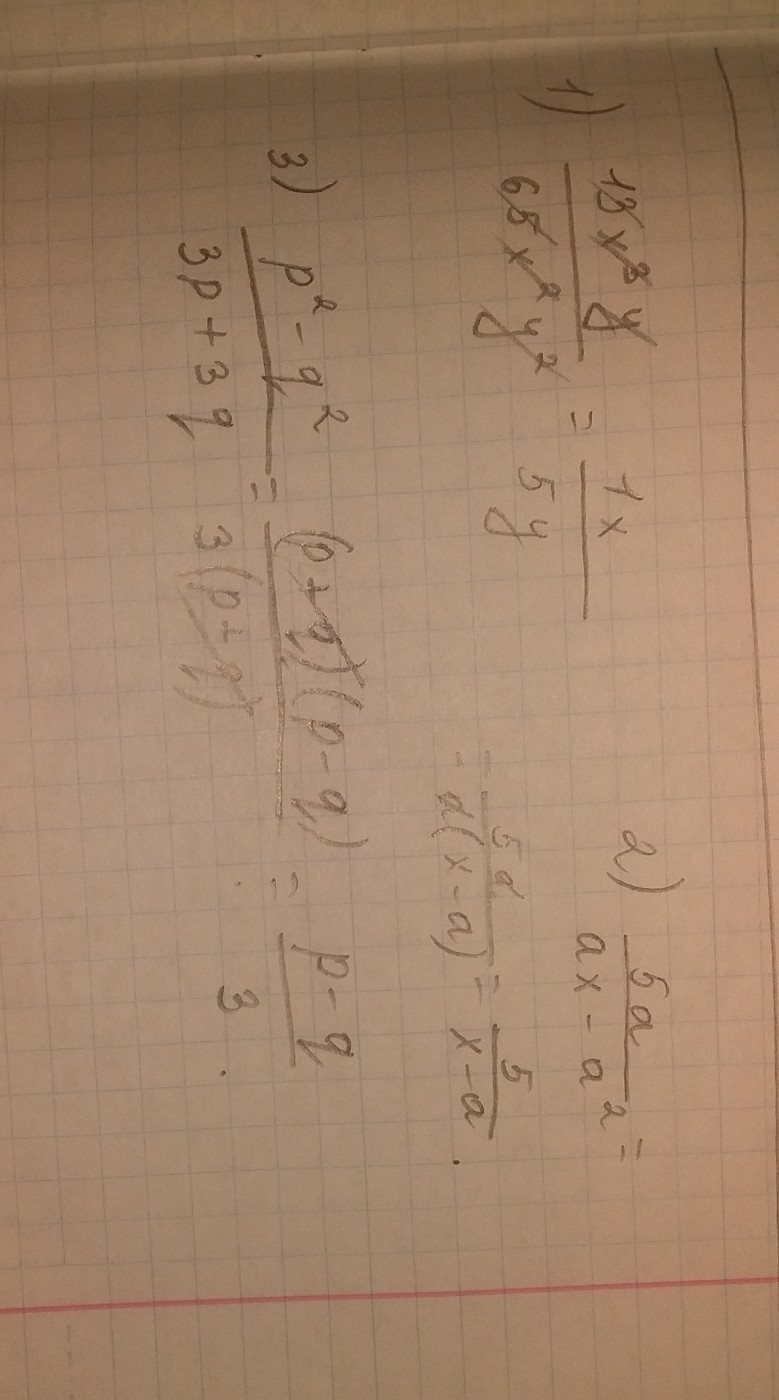 1) 13x³y / 65x²y² = 1x / 5y
2) 5a / ax - a² =
= 5a / a(x - a) = 5 / x - a .
3) p² - q² / 3p + 3q = (p + q)(p - q) / 3(p + q) = p - q / 3 .